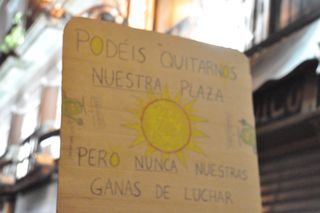 PODÉIS QUITARNOS
NUESTRA PLAZA
PERO NUNCA NUESTRAS
GANAS DE LUCHAR